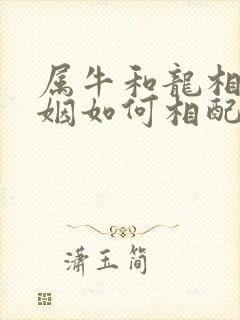 属牛和龍相
姻如何相配
潇玉简